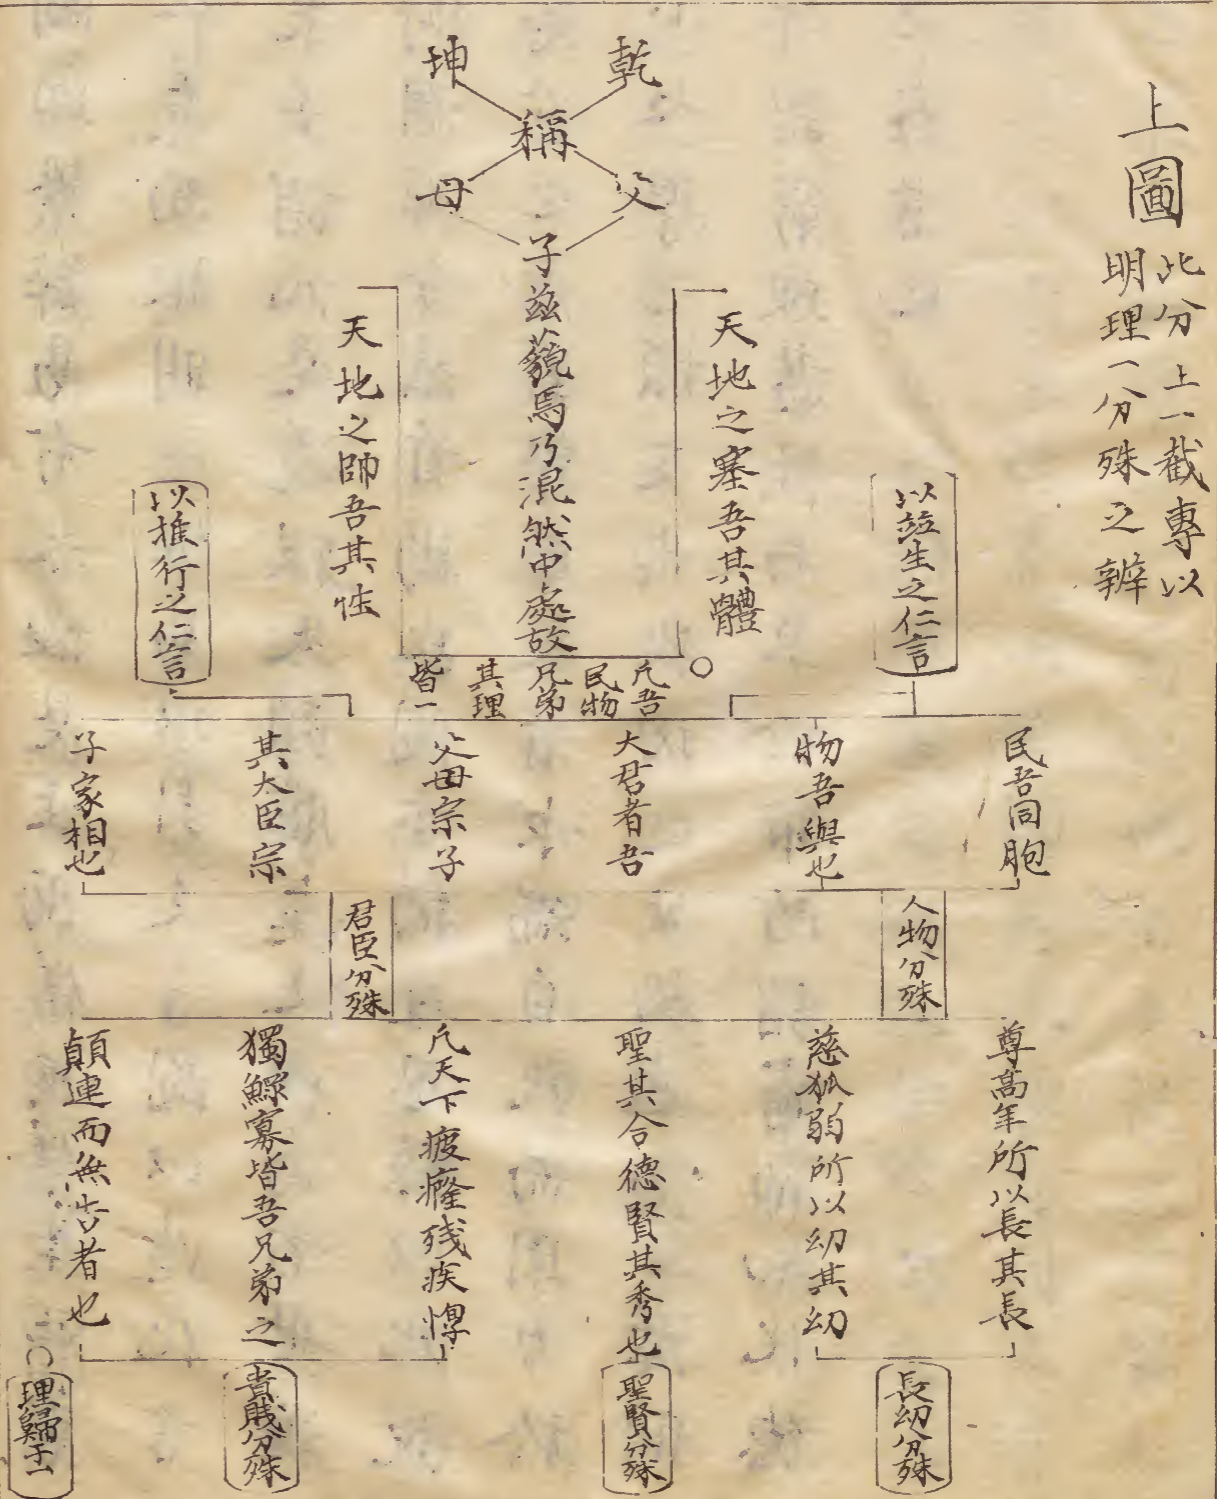 上圖
此分上一截專以
明理一分殊之辨
乾
坤
稱
父
母
子玆藐焉乃混然中處故
天地之塞吾其體
天地之帥吾其性
以竝生之仁言
以推行之仁言
凡吾
民物
兄弟
其理
皆一
民吾同胞
物吾與也
大君者吾
父母宗子
其大臣宗
子家相也
人物分殊
君臣分殊
尊高年所以長其長
慈孤弱所以幼其幼
聖其合德賢其秀也
凡天下疲癃残疾惸
獨鰥寡皆吾兄弟之
顛連而無告者也
長幼分殊
聖賢分殊
貴賤分殊
理歸于一